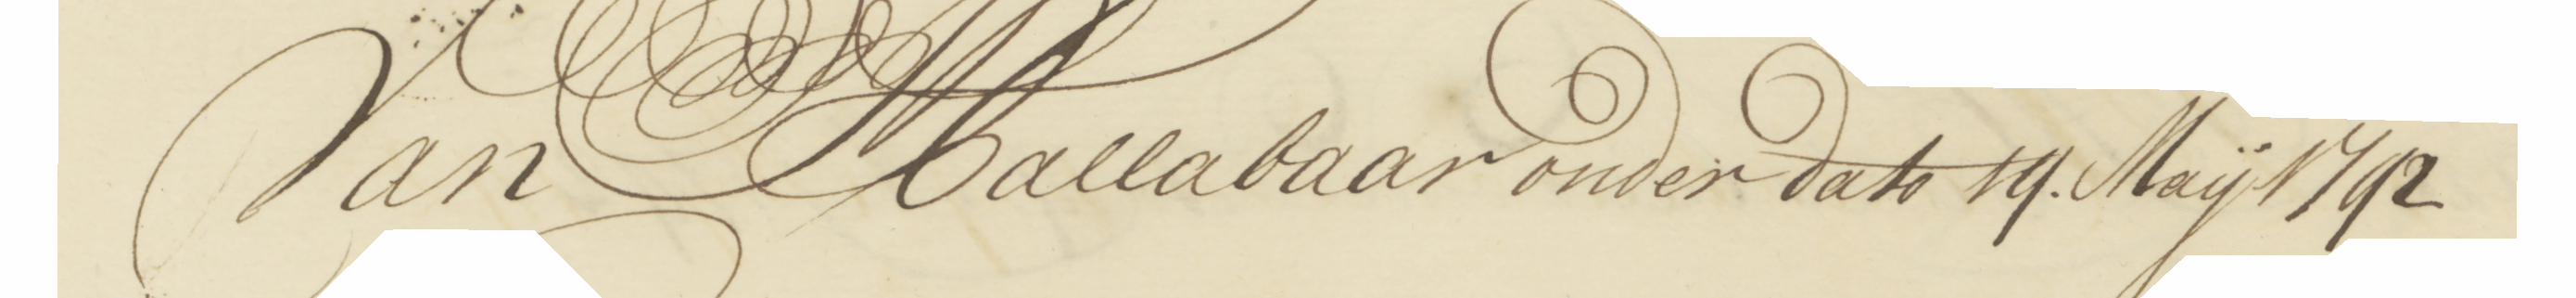 Van Mallabaar onder dato 19. Maij 1792